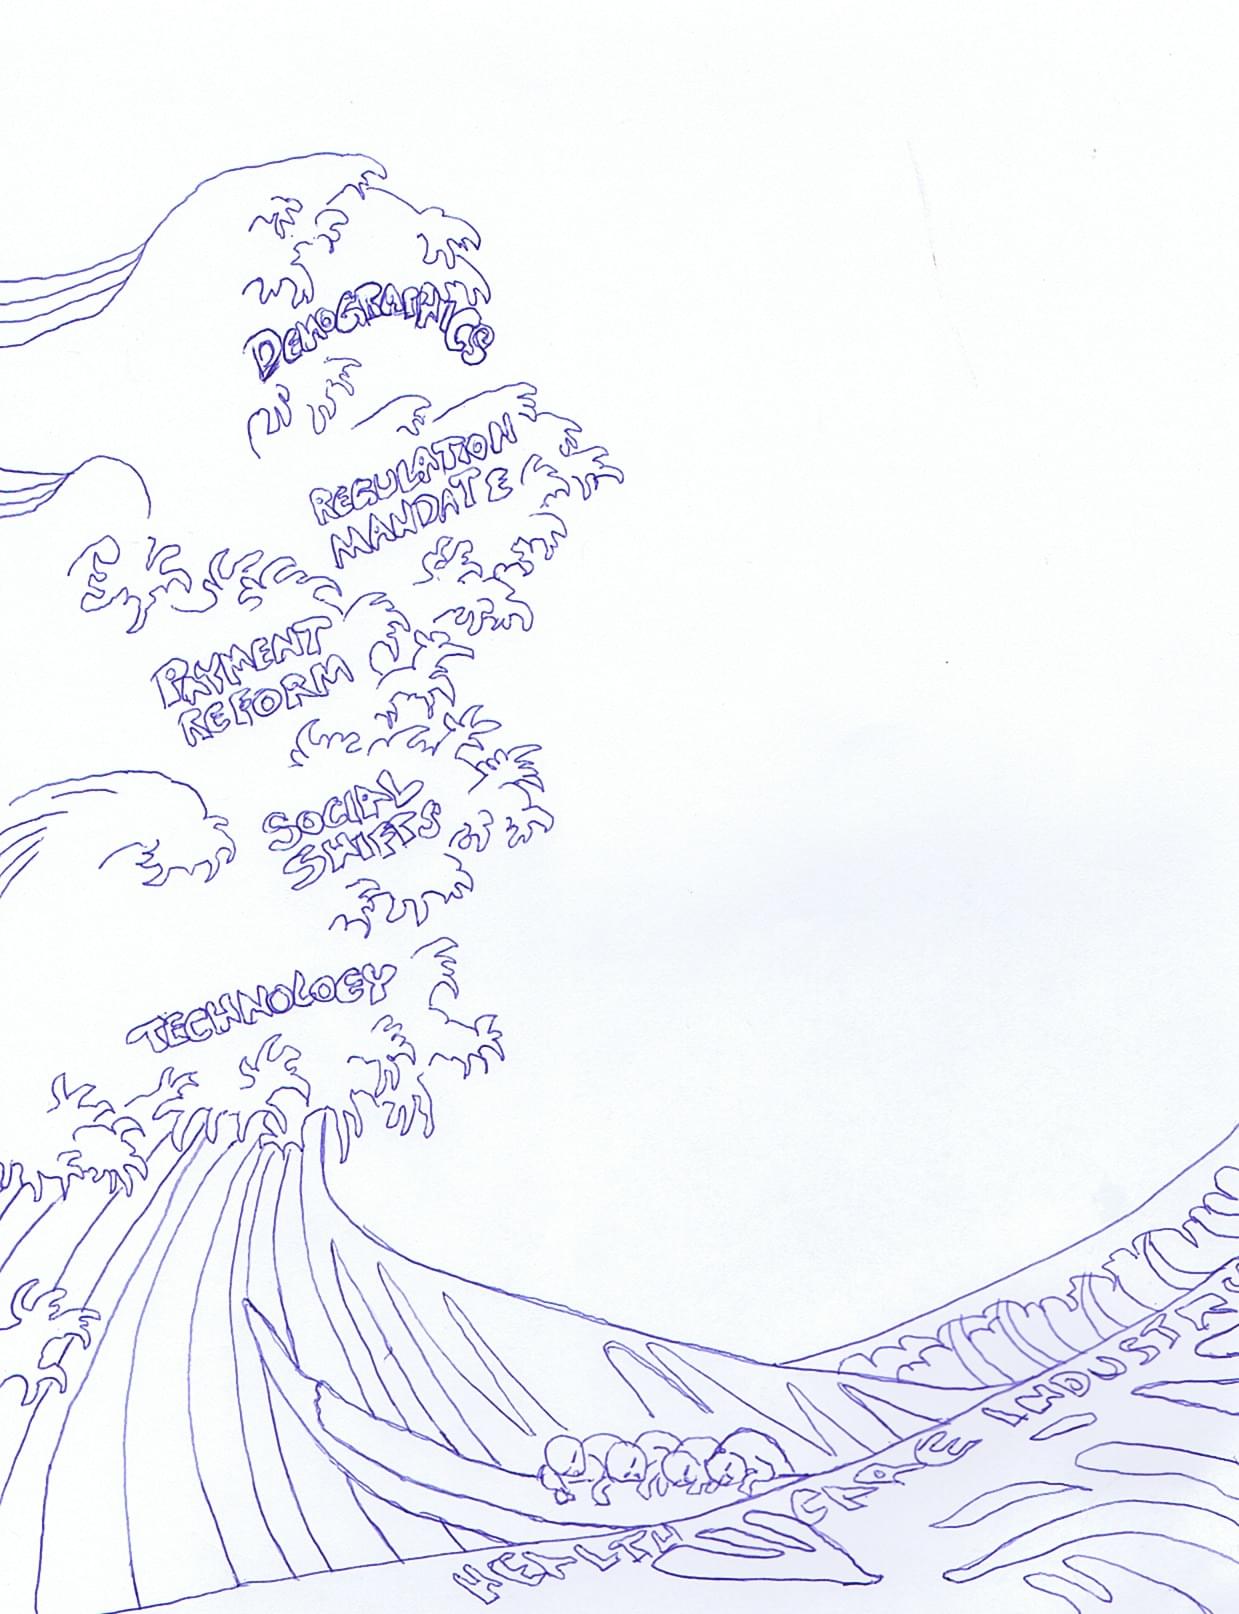 DEMOGRAPHICS
REGULATION
MANDATE
PAYMENT
REFORM
SOCIAL
SHIFTS
TECHNOLOGY
HEALTH CARE INDUSTRY